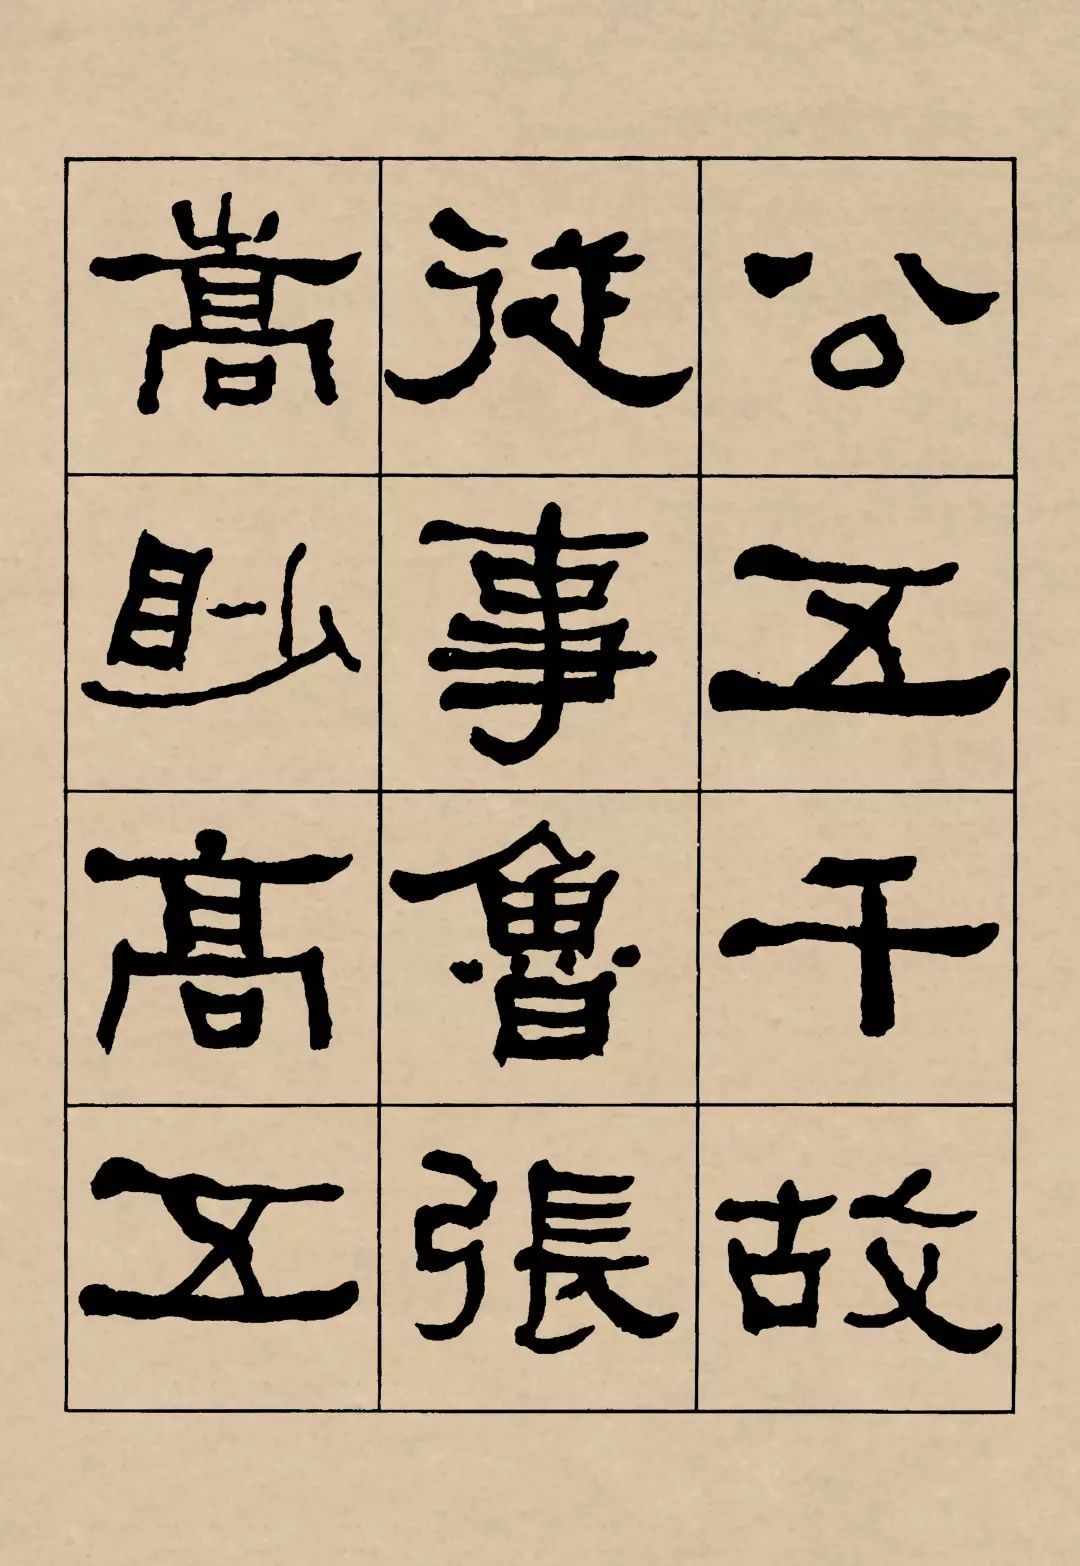 公五千故
從事魯張
嵩眇高五